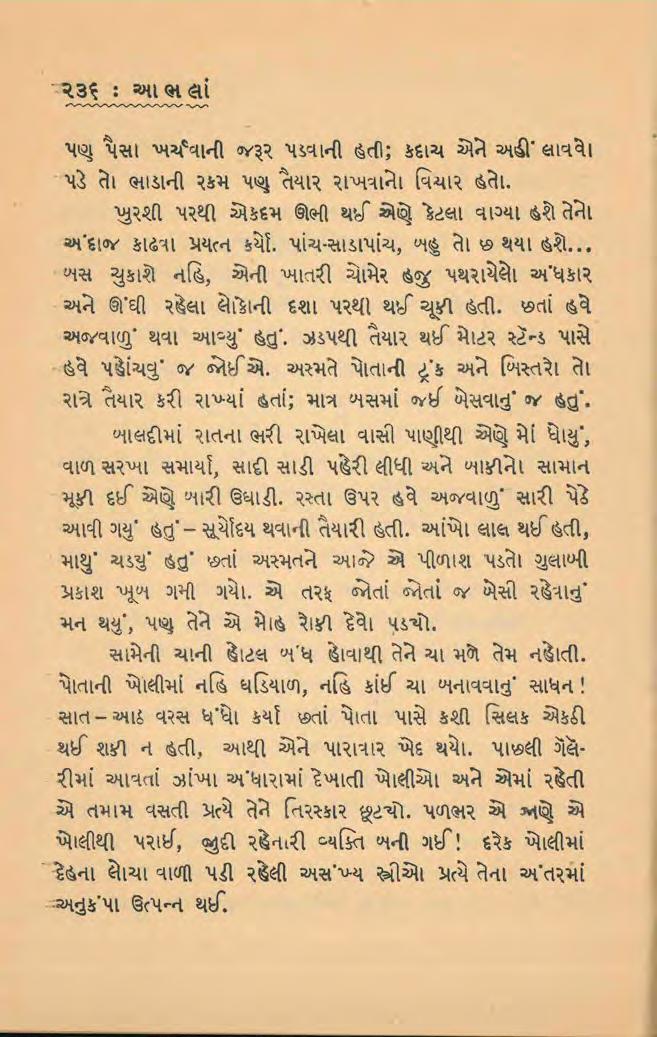 ૨૩૬ : આભલાં
પણ પૈસા ખર્ચવાની જરૂર પડવાની હતી; કદાચ એને અહીં લાવવો
પડે તો ભાડાની રકમ પણ તૈયાર રાખવાનો વિચાર હતો.
ખુરશી પરથી એકદમ ઊભી થઈ એણે કેટલા વાગ્યા હશે તેનો
અંદાજ કાઢવા પ્રયત્ન કર્યો. પાંચ-સાડાપાંચ, બહુ તો છ થયા હશે...
બસ ચુકાશે નહિ, એની ખાતરી ચોમેર હજુ પથરાયેલો અંધકાર
અને ઊંઘી રહેલા લોકોની દશા પરથી થઈ ચૂકી હતી. છતાં હવે
અજવાળું થવા આવ્યું હતું. ઝડપથી તૈયાર થઈ મોટર સ્ટેન્ડ પાસે
હવે પહોંચવું જ જોઈએ. અસ્મતે પોતાની ટ્રંક અને બિસ્તરો તો
રાત્રે તૈયાર કરી રાખ્યાં હતાં; માત્ર બસમાં જઈ બેસવાનું જ હતું.
બાલદીમાં રાતના ભરી રાખેલા વાસી પાણીથી એણે મોં ધોયું,
વાળ સરખા સમાર્યા, સાદી સાડી પહેરી લીધી અને બાકીનો સામાન
મૂકી દઈ એણે બારી ઉઘાડી. રસ્તા ઉપર હવે અજવાળું સારી પેઠે
આવી ગયું હતું – સૂર્યોદય થવાની તૈયારી હતી. આંખો લાલ થઈ હતી,
માથું ચડયું હતું છતાં અસ્મતને આજે એ પીળાશ પડતો ગુલાબી
પ્રકાશ ખૂબ ગમી ગયો. એ તરફ જોતાં જોતાં જ બેસી રહેવાનું
મન થયું, પણ તેને એ મોહ રોકી દેવો પડચો.
સામેની ચાની હોટલ બંધ હોવાથી તેને ચા મળે તેમ નહોતી.
પોતાની ખોલીમાં નહિ ઘડિયાળ, નહિ કાંઈ ચા બનાવવાનું સાધન !
સાત – આઠ વરસ ધંધો કર્યા છતાં પોતા પાસે કશી સિલક એકઠી
થઈ શકી ન હતી, આથી એને પારાવાર ખેદ થયો. પાછલી ગૅલે-
રીમાં આવતાં ઝાંખા અંધારામાં દેખાતી ખોલીઓ અને એમાં રહેતી
એ તમામ વસતી પ્રત્યે તેને તિરસ્કાર છૂટચો. પળભર એ જાણે એ
ખોલીથી પરાઈ, જુદી રહેનારી વ્યક્તિ બની ગઈ ! દરેક ખોલીમાં
દેહના લોચા વાળી પડી રહેલી અસંખ્ય સ્ત્રીઓ પ્રત્યે તેના અંતરમાં
અનુકંપા ઉત્પન્ન થઈ.